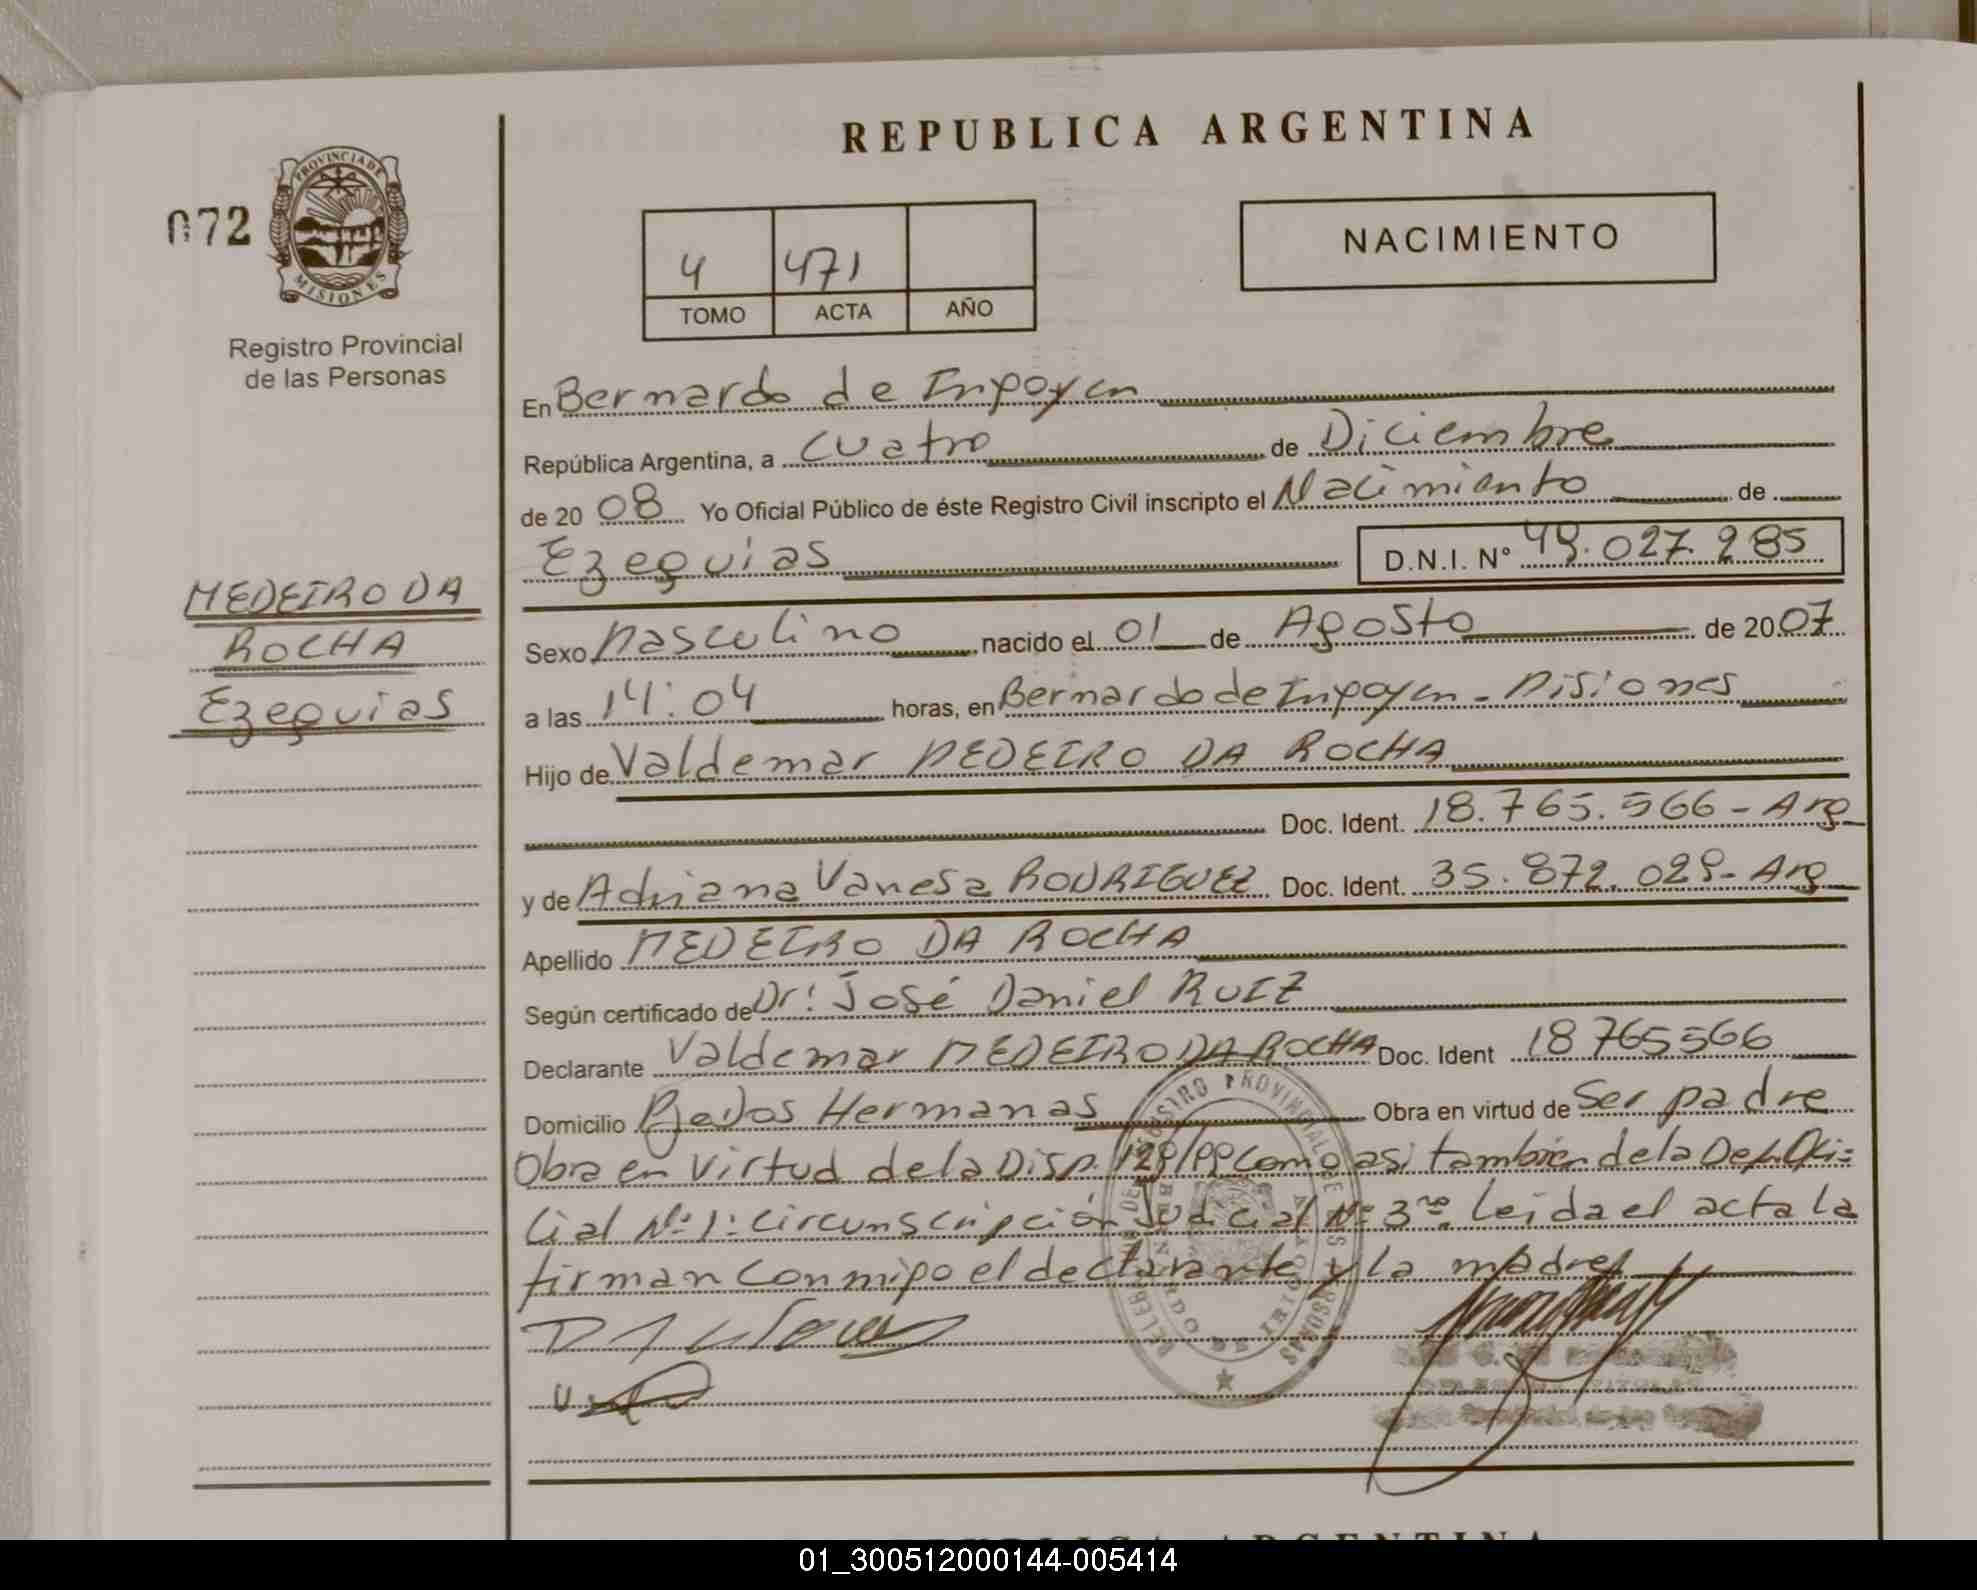 REPUBLICA ARGENTINA
072
PROVINCIA DE
MISIONES
Registro Provincial
de las Personas
4 471
TOMO ACTA AÑO
NACIMIENTO
En Bernardo de Irigoyen
República Argentina, a cuatro de Diciembre
de 20 08 Yo Oficial Público de éste Registro Civil inscripto el Nacimiento de
Ezequias D.N.I. Nº 49.027.285
MEDEIRO DA
ROCHA
Ezequias
Sexo Masculino nacido el 01 de Agosto de 2007
a las 14:04 horas, en Bernardo de Irigoyen - Misiones
Hijo de Valdemar MEDEIRO DA ROCHA
Doc. Ident. 18.765.566 - Arg
y de Adriana Vanesa RODRIGUEZ Doc. Ident. 35.872.029 - Arg
Apellido MEDEIRO DA ROCHA
Según certificado de Dr: José Daniel RUIZ
Declarante Valdemar MEDEIRO DA ROCHA Doc. Ident 18765566
Domicilio Dos Hermanas Obra en virtud de Ser padre
Obra en virtud de la Disp. como asi también de la Def. Ofi=
cial Nº 1: circunscripción Judicial Nº 3ra. leida el acta la
firman conmigo el declarante y la madre
REPUBLICA ARGENTINA
01_300512000144-005414